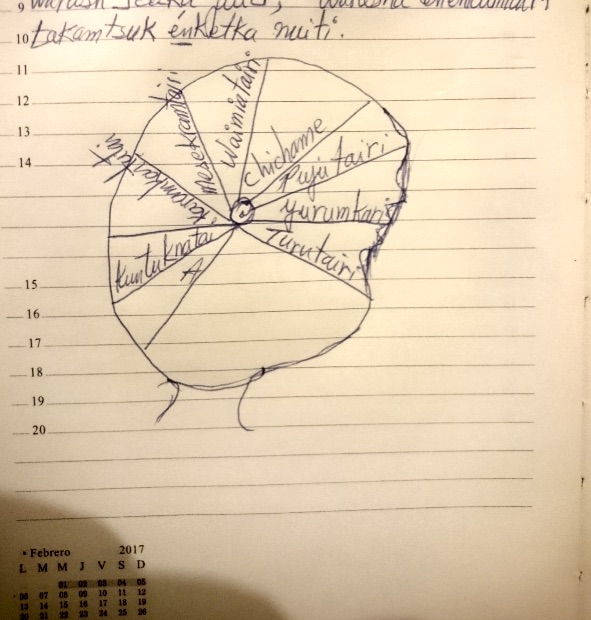 9
10 takamtsuk enketka nuiti.
11
12
13
14
15
16
17
18
19
20
mesekramtairi
Waimiatairi
chichame
Pujutairi
yurumkari
Turutairi
karamkatairi
Kuntuknatai
A
• Febrero 2017
L M M J V S D
01 02 03 04 05
06 07 08 09 10 11 12
13 14 15 16 17 18 19
20 21 22 23 24 25 26